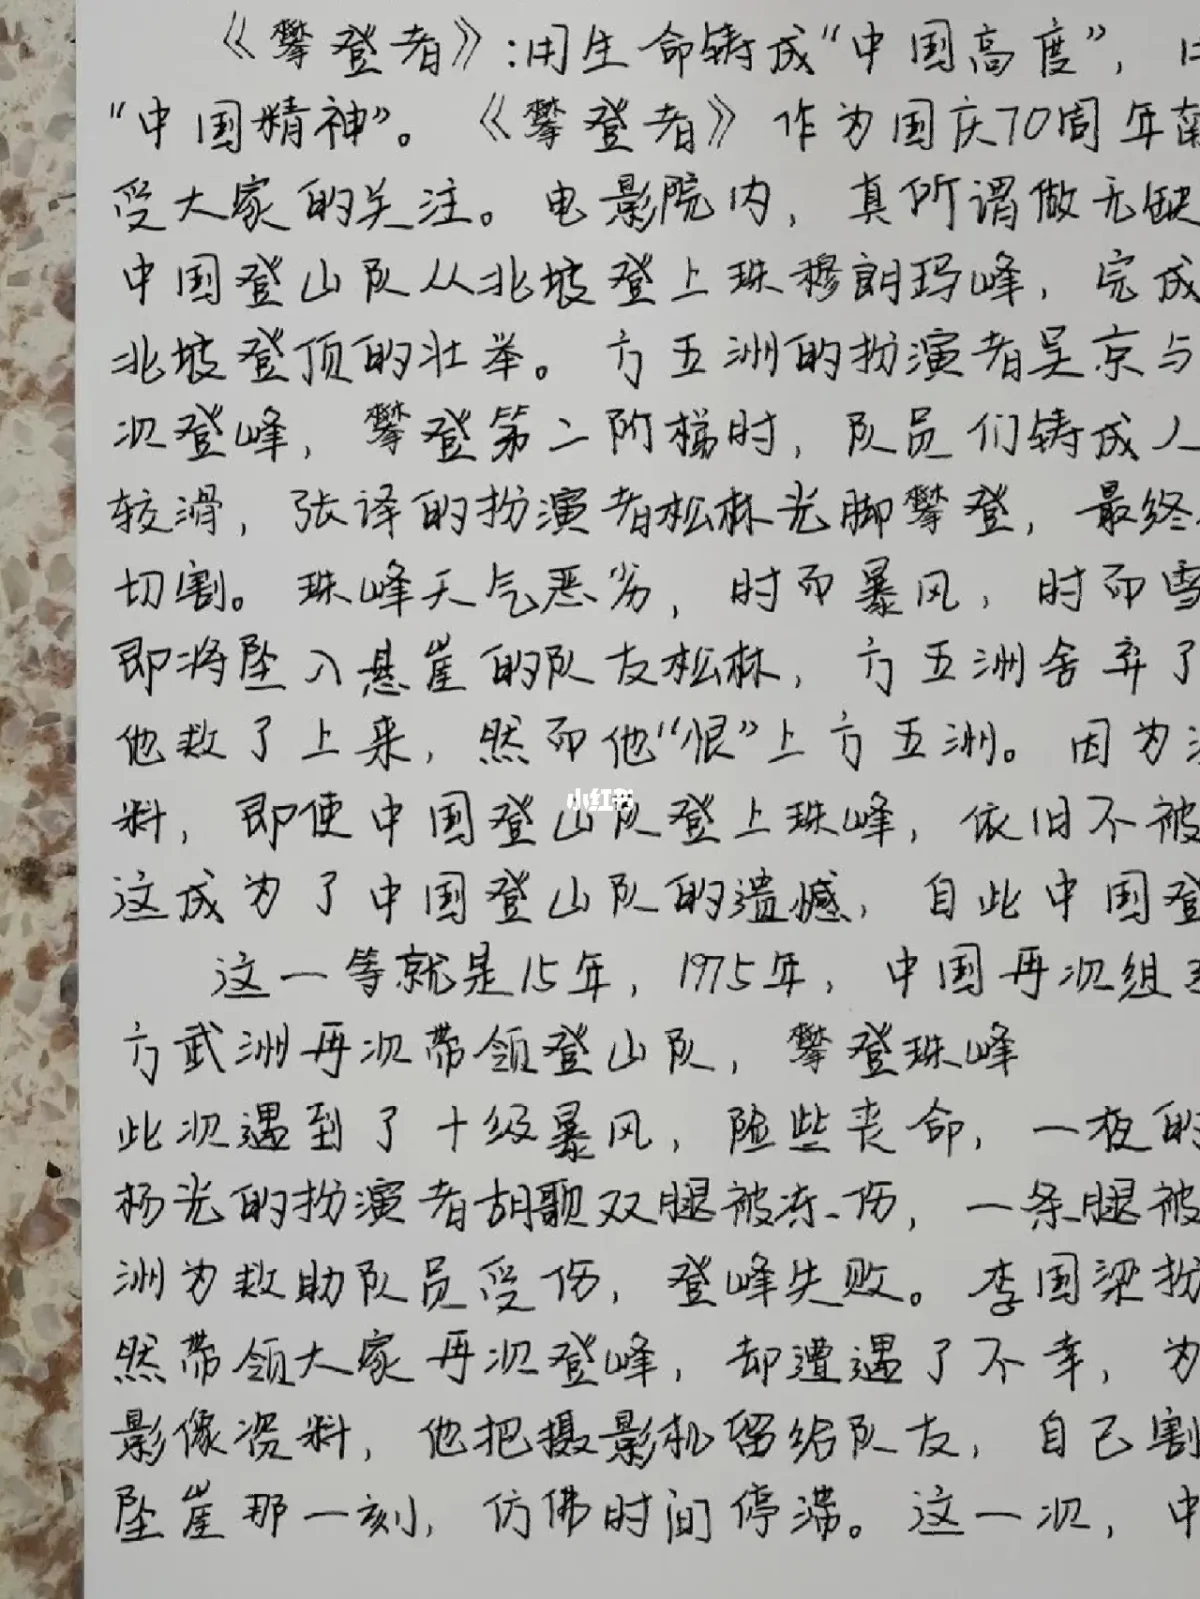 《攀登者》:用生命铸成“中国高度”,
“中国精神”。《攀登者》作为国庆70周年
受大家的关注。电影院内,真所谓做无缺
中国登山队从北坡登上珠穆朗玛峰,完成
北坡登顶的壮举。方五洲的扮演者吴京与
次登峰,攀登第二阶梯时,队员们铸成人
较滑,张译的扮演者松林光脚攀登,最终
切割。珠峰天气恶劣,时而暴风,时而雪
即将坠入悬崖的队友松林,方五洲舍弃了
他救了上来,然而他“恨”上方五洲。因为
料,即使中国登山队登上珠峰,依旧不被
这成为了中国登山队的遗憾,自此中国登
这一等就是15年,1975年,中国再次组
方武洲再次带领登山队,攀登珠峰
此次遇到了十级暴风,险些丧命,一夜的
杨光的扮演者胡歌双腿被冻伤,一条腿被
洲为救助队员受伤,登峰失败。李国梁扮
然带领大家再次登峰,却遭遇了不幸,为
影像资料,他把摄影机留给队友,自己割
坠崖那一刻,仿佛时间停滞。这一次,中
小红书